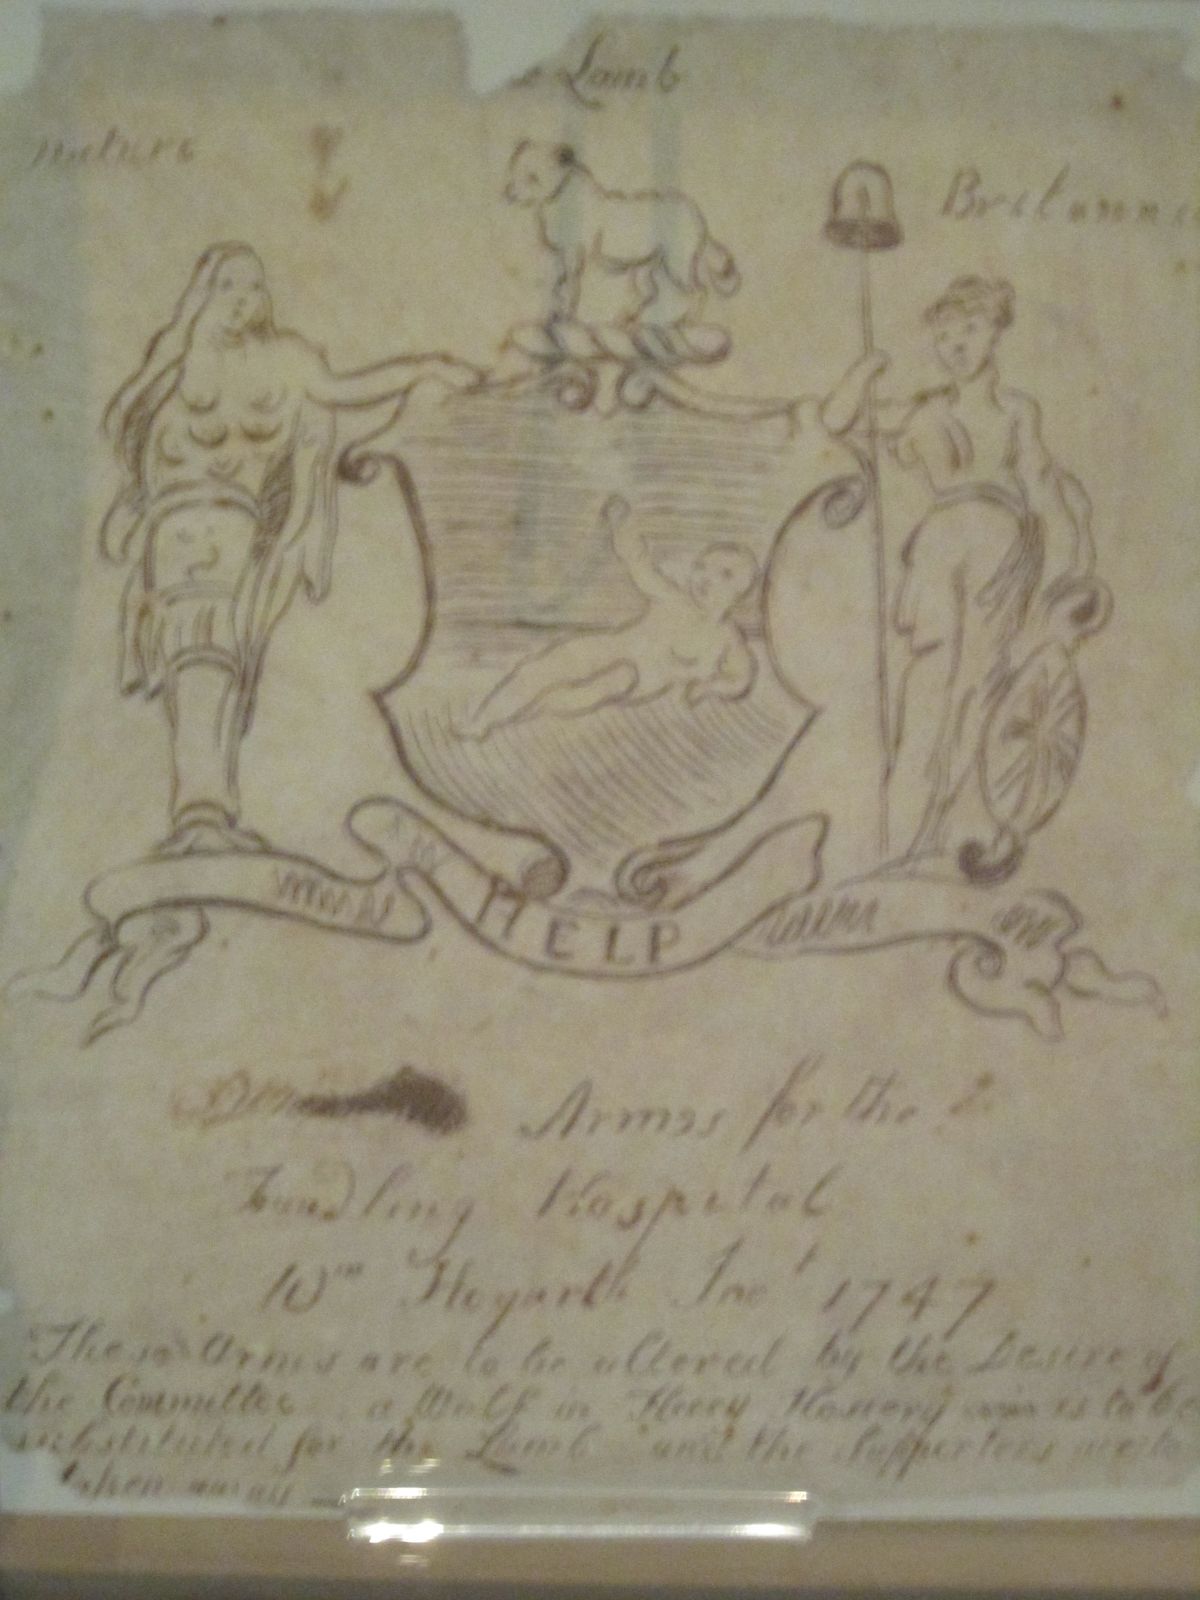 e Lamb
nature
Britannia
HELP
Armes for the
Foundling Hospital
Wm Hogarth Invt 1747
These Arms are to be altered by the Desire of
the Committee a Wolf in Fleecy Hosiery is to be
substituted for the Lamb and the Supporters are to
taken away